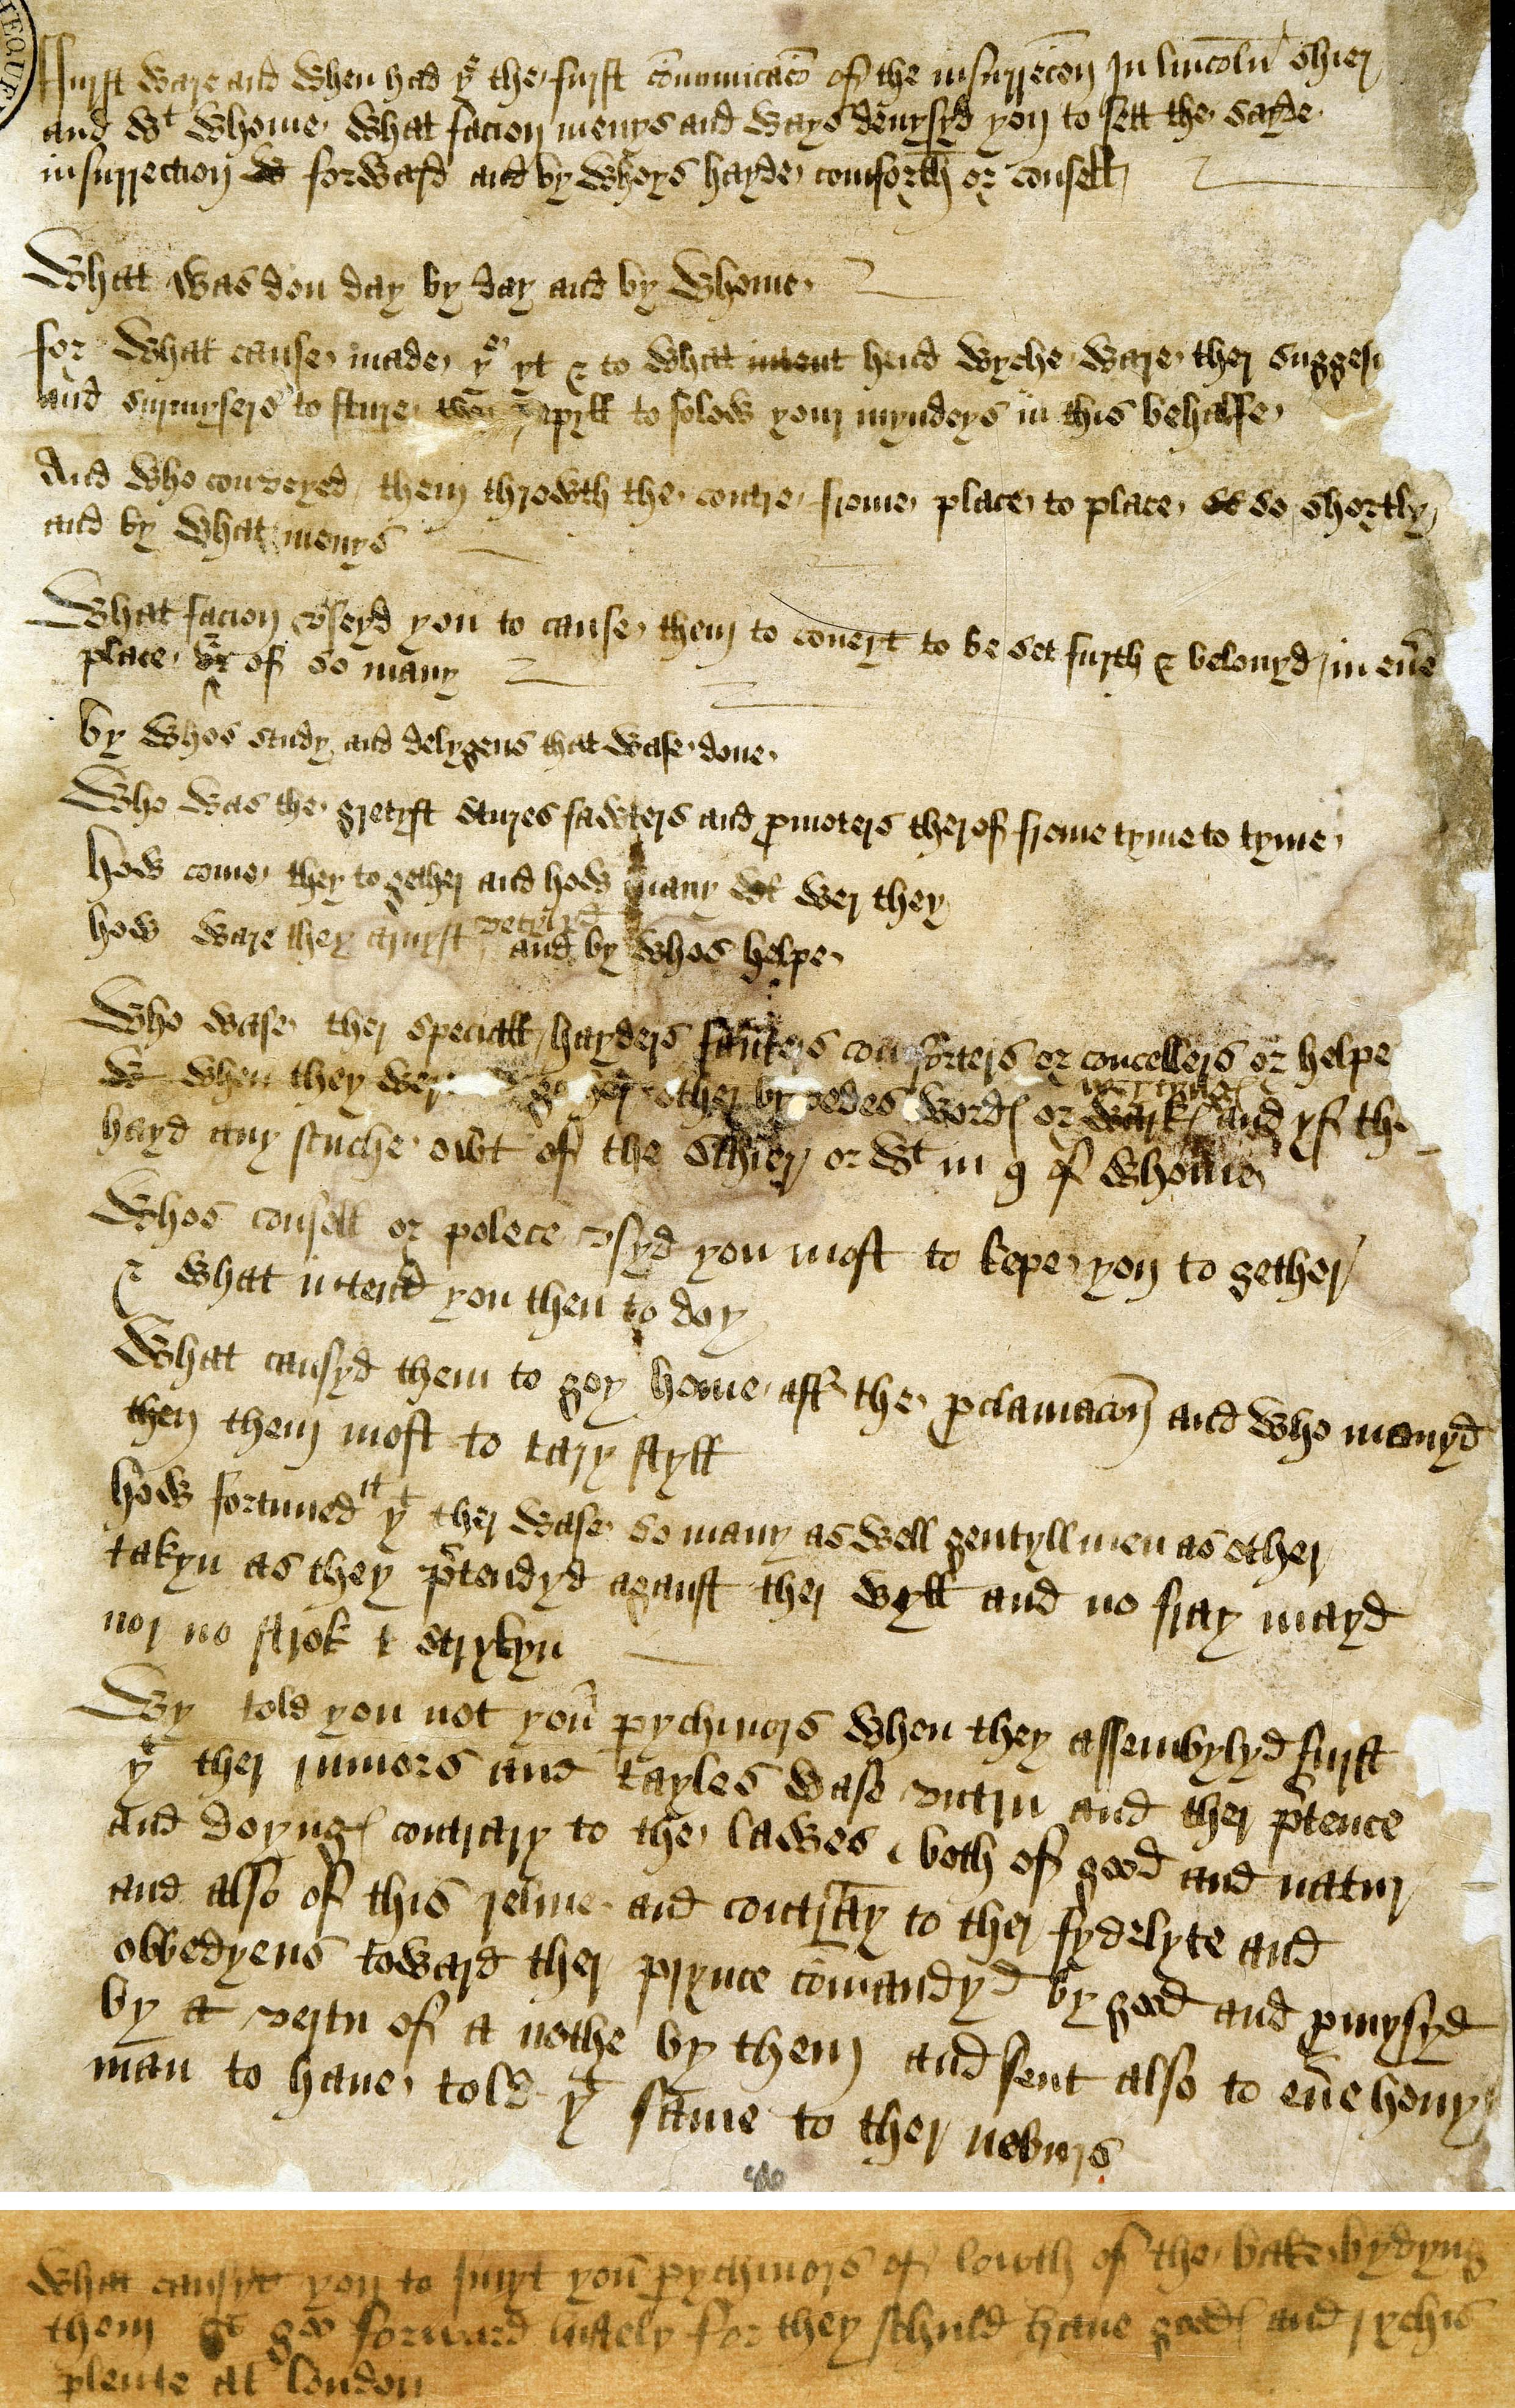 Furst ware and when had ye the furst comunicacō of the insurreccon In lincoln shier
and wt whome what facion menys and ways devysyd you to sett the sayde
insurrection forward and by whoys hayde comforth or consell
What was don day by day and by whome
for what cause made ye yt & to what intent hend wyche ware ther sugges
and surmysers to sture pepyll to folow your myndeys in this behalfe
And who conveyed them throwth the contre frome place to place so shortly
and by what menys
What facion vseyd you to cause them to covert to be set furth & belouyd in evē
place of so many
by whos study and delygens that wase done
Who was the gretyst stures fawters and pmoters therof frome tyme to tyme
how come they to gether and how many wer they
how ware they and by whos helpe
Who wase ther speciall hayders fauters comforters or concellers or helpe
when they wer other by dedes word or wark and yf the
hayd any suche owt of the schier or wt in & of whome
Whos consell or polece vsyd you most to kepe you to gether
& what intend you then to doy
What causyd them to goy home aft the pclamacon and who movyd
then them most to tary styll
how fortuned it yt ther wase so many as well gentyllmen as other
takyn as they ptendyd aganst ther wyll and no fray mayd
nor no strok strykyn
Wy told you not your pychinors when they assembylyd furst
yt ther rumors and tayles wase vntru and ther ptence
and doyng contrary to the lawes both of good and natur
and also of this relme and contrary to ther fydelyte and
obbedyens toward ther prynce comandyd by good and pmysyd
by a vertu of a nothe by them and sent also to evē hony
man to have told yt same to ther neburs
What causyd you to smyt your pychinors of lowth of the bake bydyng
them go forward lustely for they schuld have good and rychis
plente at london